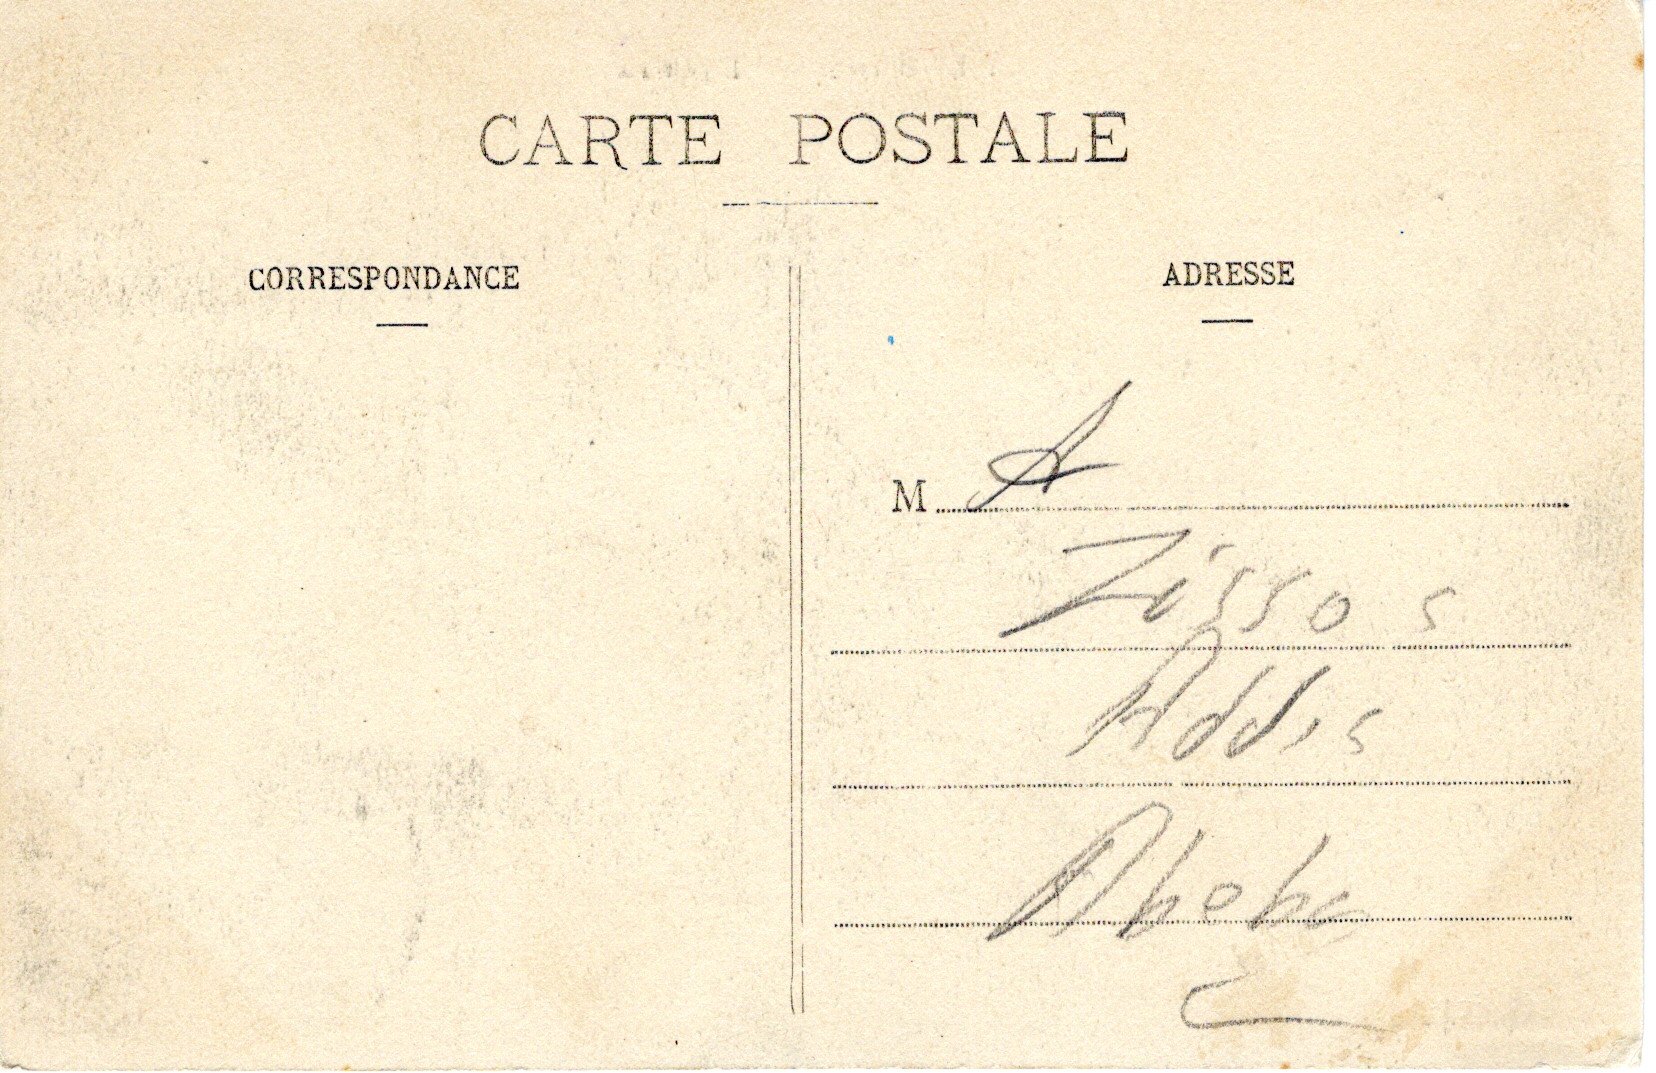 CARTE POSTALE
CORRESPONDANCE
ADRESSE
M A
Zissos
Addis
Abeba